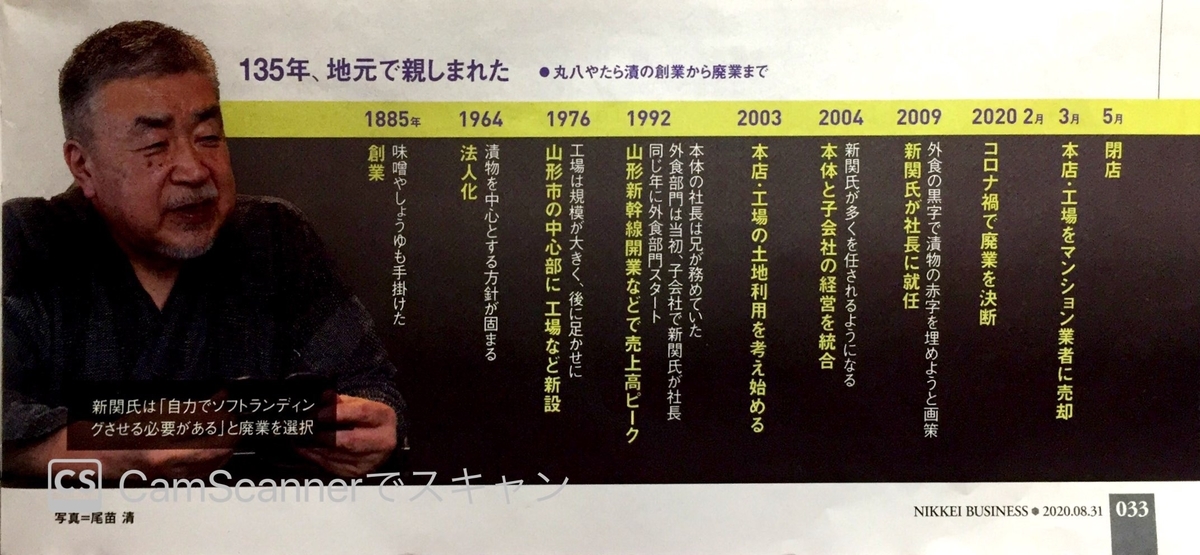 135年、地元で親しまれた
●丸八やたら漬の創業から廃業まで
1885年
創業
味噌やしょうゆも手掛けた
1964
法人化
漬物を中心とする方針が固まる
1976
山形市の中心部に工場など新設
工場は規模が大きく、後に足かせに
1992
山形新幹線開業などで売上高ピーク
同じ年に外食部門スタート
外食部門は当初、子会社で新関氏が社長
本体の社長は兄が務めていた
2003
本店・工場の土地利用を考え始める
2004
本体と子会社の経営を統合
新関氏が多くを任されるようになる
2009
新関氏が社長に就任
外食の黒字で漬物の赤字を埋めようと画策
2020 2月
コロナ禍で廃業を決断
3月
本店・工場をマンション業者に売却
5月
閉店
新関氏は「自力でソフトランディン
グさせる必要がある」と廃業を選択
CS CamScannerでスキャン
写真=尾苗 清
NIKKEI BUSINESS ● 2020.08.31 033